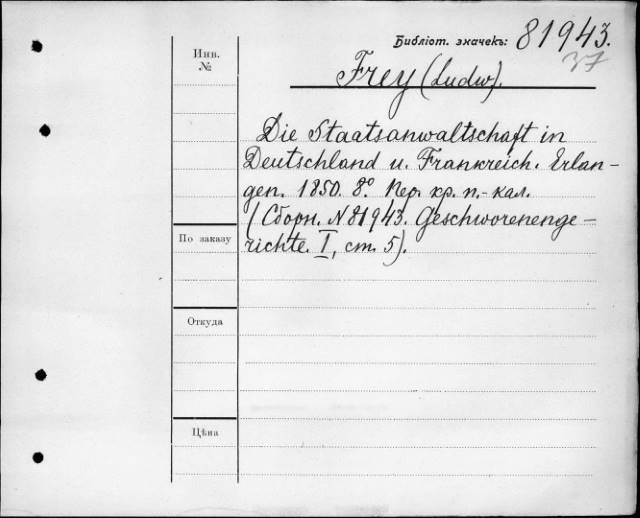 Библіот. значекъ: 81943.
37
Инв.
№
Frey (Ludw).
Die Staatsanwaltschaft in
Deutschland u. Frankreich. Erlan-
gen. 1850. 8º. Пер. кр. п.-кал.
(Сборн. №81943. Geschworenenge-
richte. I, ст. 5).
По заказу
Откуда
Цѣна